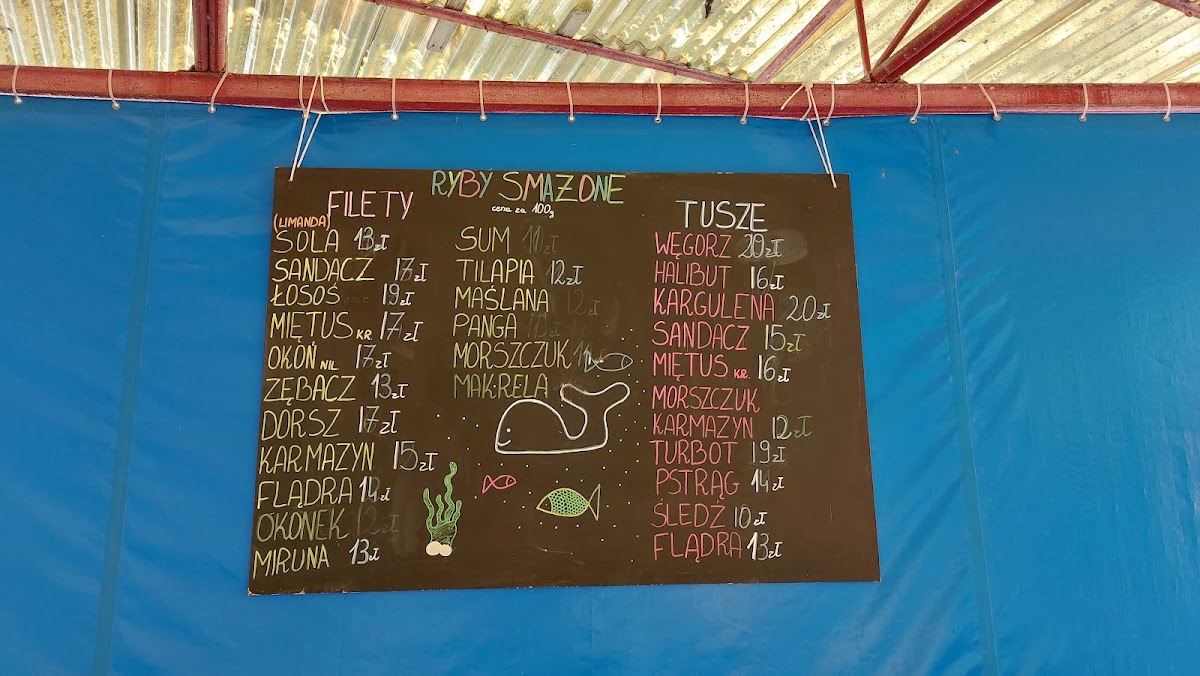 RYBY SMAŻONE
cena za 100g
FILETY
(LIMANDA)
SOLA 13zł
SANDACZ 17zł
ŁOSOŚ 19zł
MIĘTUS KR. 17zł
OKOŃ NIL. 17zł
ZĘBACZ 13zł
DORSZ 17zł
KARMAZYN 15zł
FLĄDRA 14zł
OKONEK 12zł
MIRUNA 13zł
SUM 11zł
TILAPIA 12zł
MAŚLANA 12zł
PANGA 10zł
MORSZCZUK
MAKRELA
TUSZE
WĘGORZ 20zł
HALIBUT 16zł
KARGULENA 20zł
SANDACZ 15zł
MIĘTUS KR. 16zł
MORSZCZUK
KARMAZYN 12zł
TURBOT 19zł
PSTRĄG 14zł
ŚLEDŹ 10zł
FLĄDRA 13zł